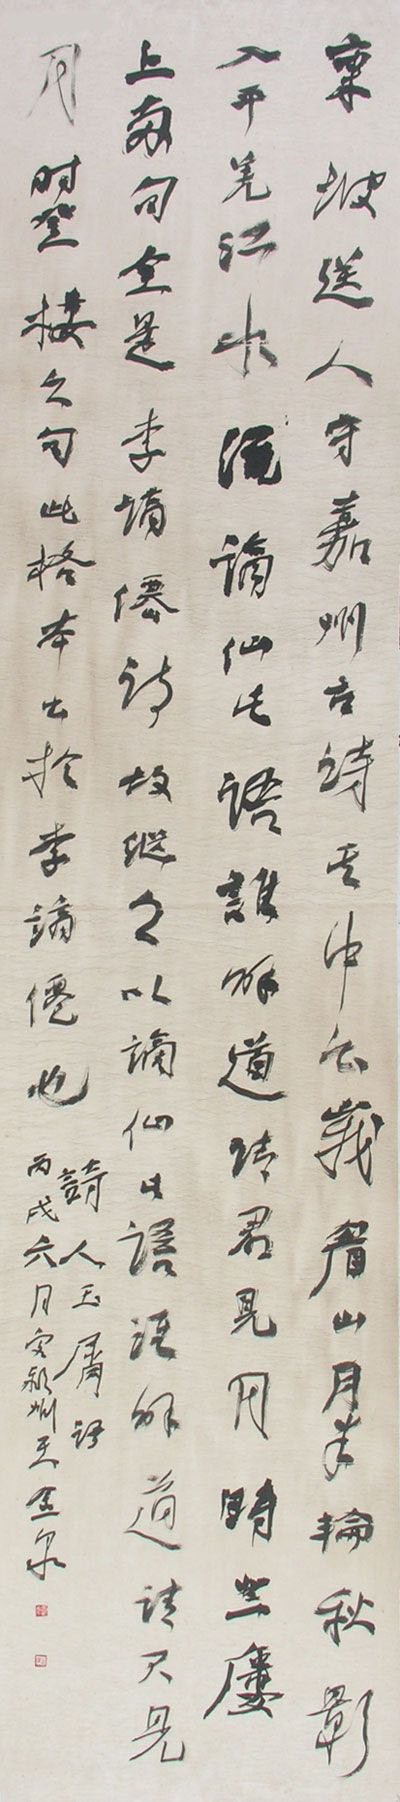 東坡送人守嘉州古詩其中云峨眉山月半輪秋影
入平羌江水流謫仙此語誰解道請君見月時登樓
上兩句全是李謫僊詩故繼之以謫仙此語誰解道請君見
月時登樓之句此格本出於李謫僊也
詩人玉屑語
丙戌六月州王金泉